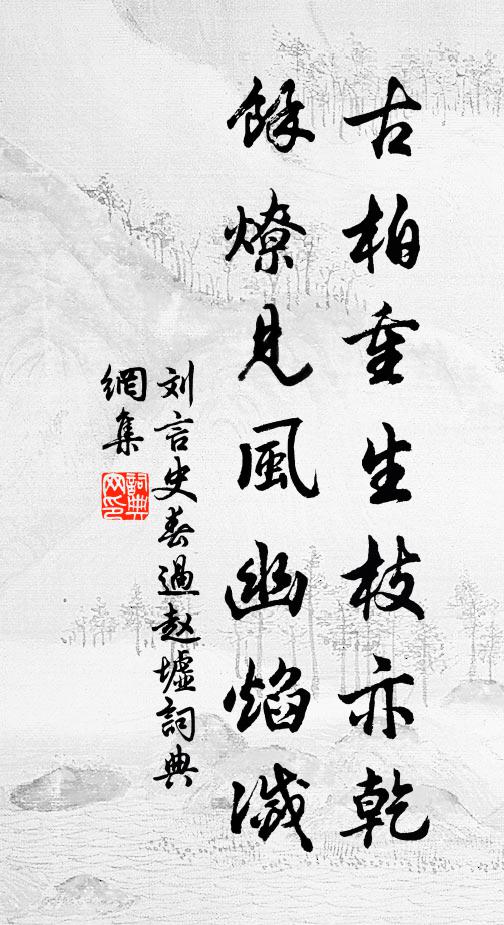 古柏重生枝亦乾
餘燎見風幽焰滅
刘言史春過赵墟詞典
網集
詞典
网印